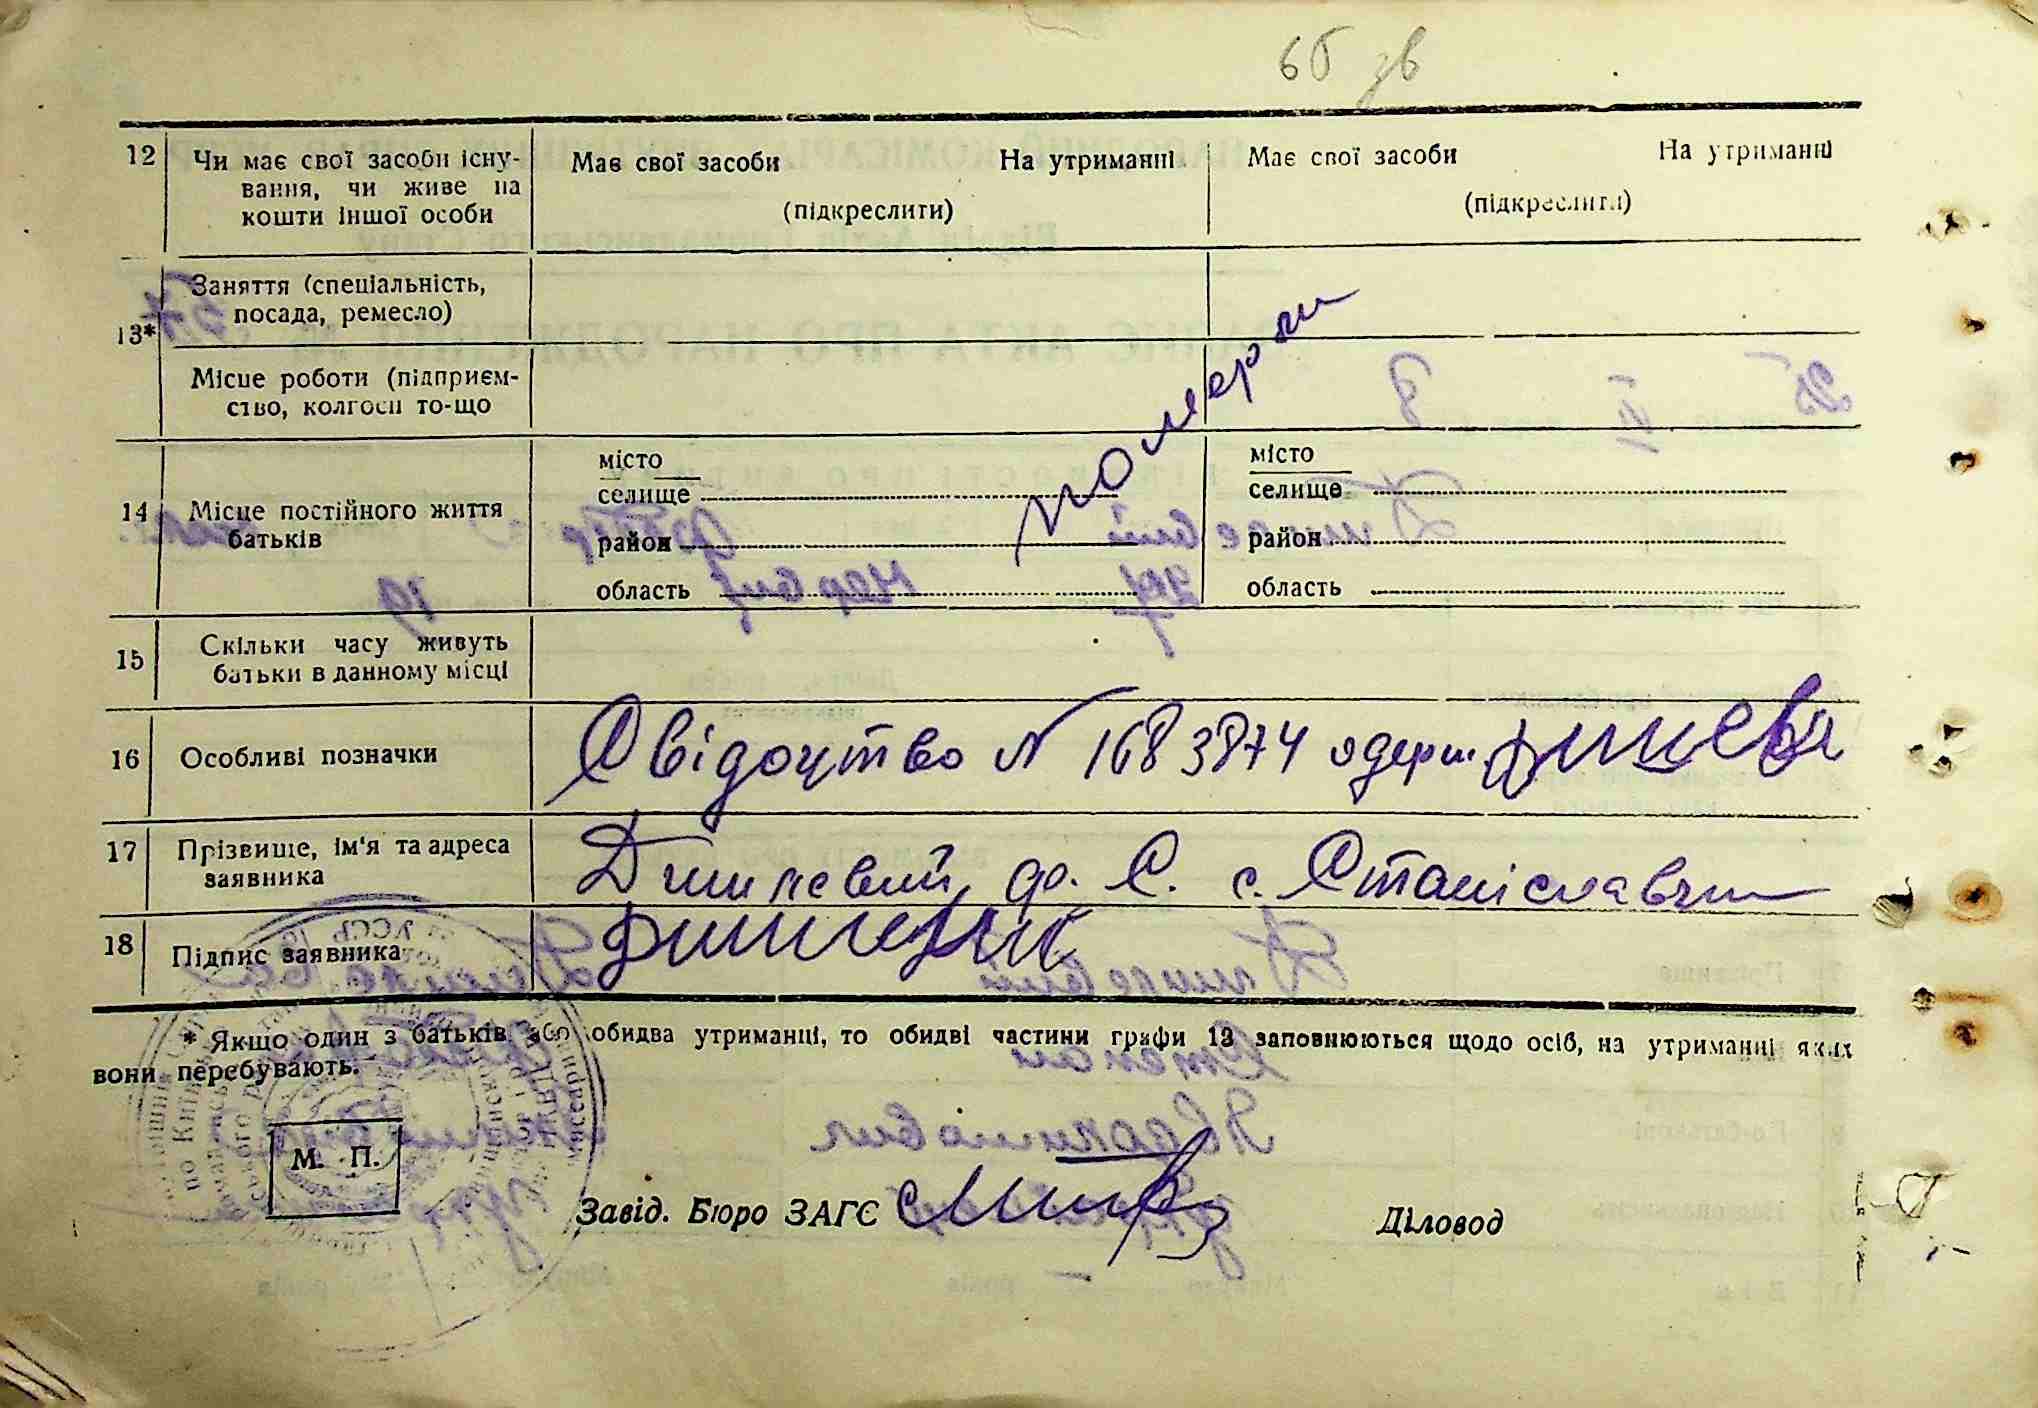 6б зв
12 Чи має свої засоби існу-
вання, чи живе на
кошти іншої особи
Має свої засоби На утриманні
(підкреслити)
Має свої засоби На утриманні
(підкреслити)
13*
Заняття (спеціальність,
посада, ремесло)
Місце роботи (підприєм-
ство, колгосп то-що
померли
14 Місце постійного життя
батьків
місто
селище
район
область
місто
селище
район
область
15 Скільки часу живуть
батьки в данному місці
16 Особливі позначки
Свідоцтво № 1683874 одерж.
17 Прізвище, ім'я та адреса
заявника
с. Станіславчик
18 Підпис заявника
* Якщо один з батьків або обидва утриманці, то обидві частини графи 13 заповнюються щодо осіб, на утриманні яких
вони перебувають.
М. П.
Завід. Бюро ЗАГС
Діловод